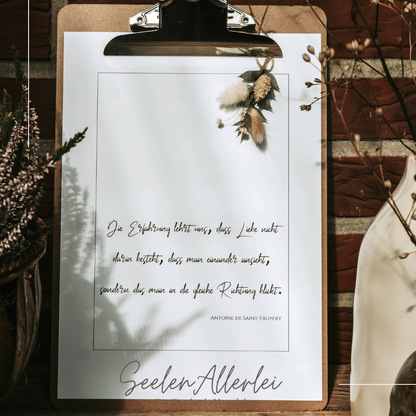 Die Erfahrung lehrt uns, dass Liebe nicht
darin besteht, dass man einander ansieht,
sondern das man in die gleiche Richtung blickt.
Antoine de Saint-Exupéry
SeelenAllerlei